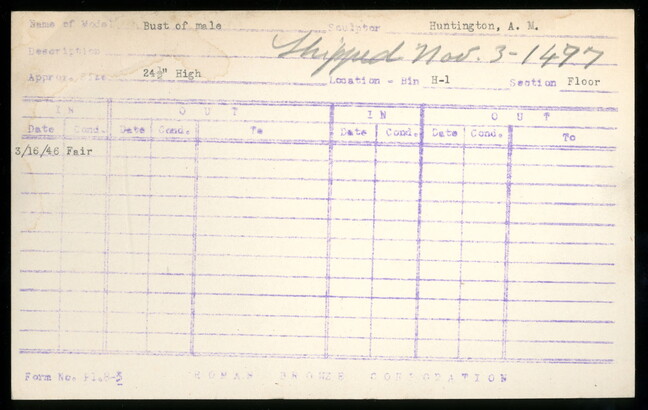 Name of Model Bust of male Sculptor Huntington, A. M.
Description Shipped Nov. 3-1977
Approx. Size 24½" High Location - Bin H-1 Section Floor
IN OUT IN OUT
Date Cond. Date Cond. To Date Cond. Date Cond. To
3/16/46 Fair
Form No. P1.8-3 ROMAN BRONZE CORPORATION